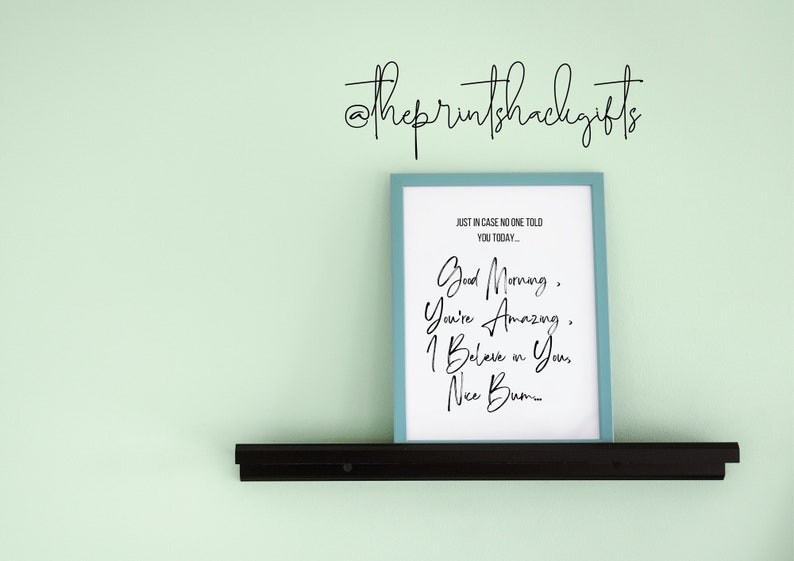 @theprintshackgifts
JUST IN CASE NO ONE TOLD
YOU TODAY...
Good Morning ,
You're Amazing ,
I Believe in You,
Nice Bum...